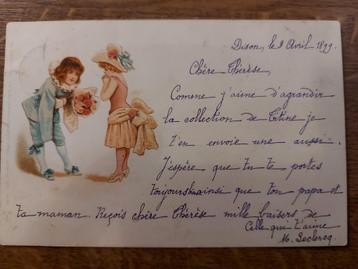 Dison, le 1 Avril 1899.
Chère Thérèse,
Comme j'aime d'agrandir
la collection de Titine je
t'en envoie une aussi.
J'espère que tu te portes
toujours ainsi que ton papa et
ta maman. Reçois chère Thérèse mille baisers de
Celle qui t'aime
M. Leclercq